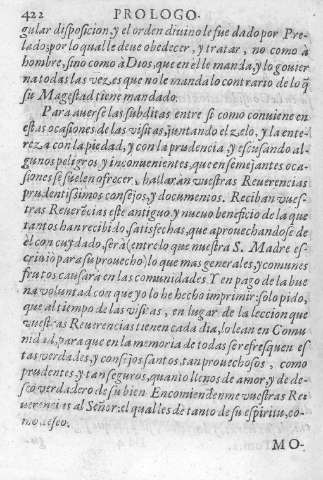 422 PROLOGO.
gular disposicion, y el orden diuino le fue dado por Pre-
lado; por lo qual le deue obedecer, y tratar, no como à
hombre, sino como à Dios, que en el le manda, y lo gouier
na todas las vezes que no le manda lo contrario de lo q̃
su Magestad tiene mandado.
Para auerse las subditas entre si como conuiene en
estas ocasiones de las visitas, juntando el zelo, y la ente-
reza con la piedad, y con la prudencia, y escusando al-
gunos peligros y inconuenientes, que en semejantes oca-
siones se suelen ofrecer, hallaràn vuestras Reuerencias
prudentissimos consejos, y documentos. Reciban vues-
tras Reuerẽcias este antiguo y nueuo beneficio de la que
tantos han recibido, satisfechas, que aprouechandose de
èl con cuydado, serà (entre lo que nuestra S. Madre es-
criuio para su prouecho) lo que mas generales, y comunes
frutos causarà en las comunidades. Y en pago de la bue
na voluntad con que yo lo he hecho imprimir: solo pido,
que al tiempo de las visitas, en lugar de la leccion que
vuestras Reuerencias tienen cada dia, lo lean en Comu
nidad, para que en la memoria de todas se refresquen es
tas verdades, y consejos santos, tan prouechosos, como
prudentes y tan seguros, quanto llenos de amor, y de de-
seo verdadero de su bien. Encomienden me vuestras Re
uerencias al Señor: el qual les dè tanto de su espiritu, co-
mo deseo.
MO-